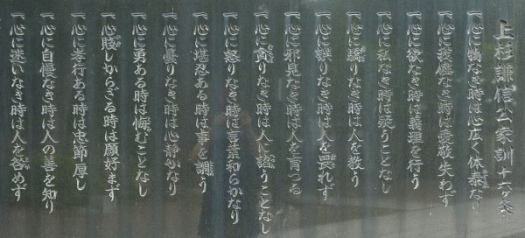 上杉謙信公家訓十六ヶ条
一心に物なき時は心広く体泰なり
一心に我儘なき時は愛敬失わず
一心に欲なき時は義理を行う
一心に私なき時は疑うことなし
一心に驕りなき時は人を敬う
一心に誤りなき時は人を畏れず
一心に邪見なき時は人を育つる
一心に貪りなき時は人に諂うことなし
一心に怒りなき時は言葉和らかなり
一心に堪忍ある時は事を調う
一心に曇りなき時は心静かなり
一心に勇ある時は悔むことなし
一心に賤しからざる時は願好まず
一心に孝行ある時は忠節厚し
一心に自慢なき時は人の善を知り
一心に迷いなき時は人を咎めず